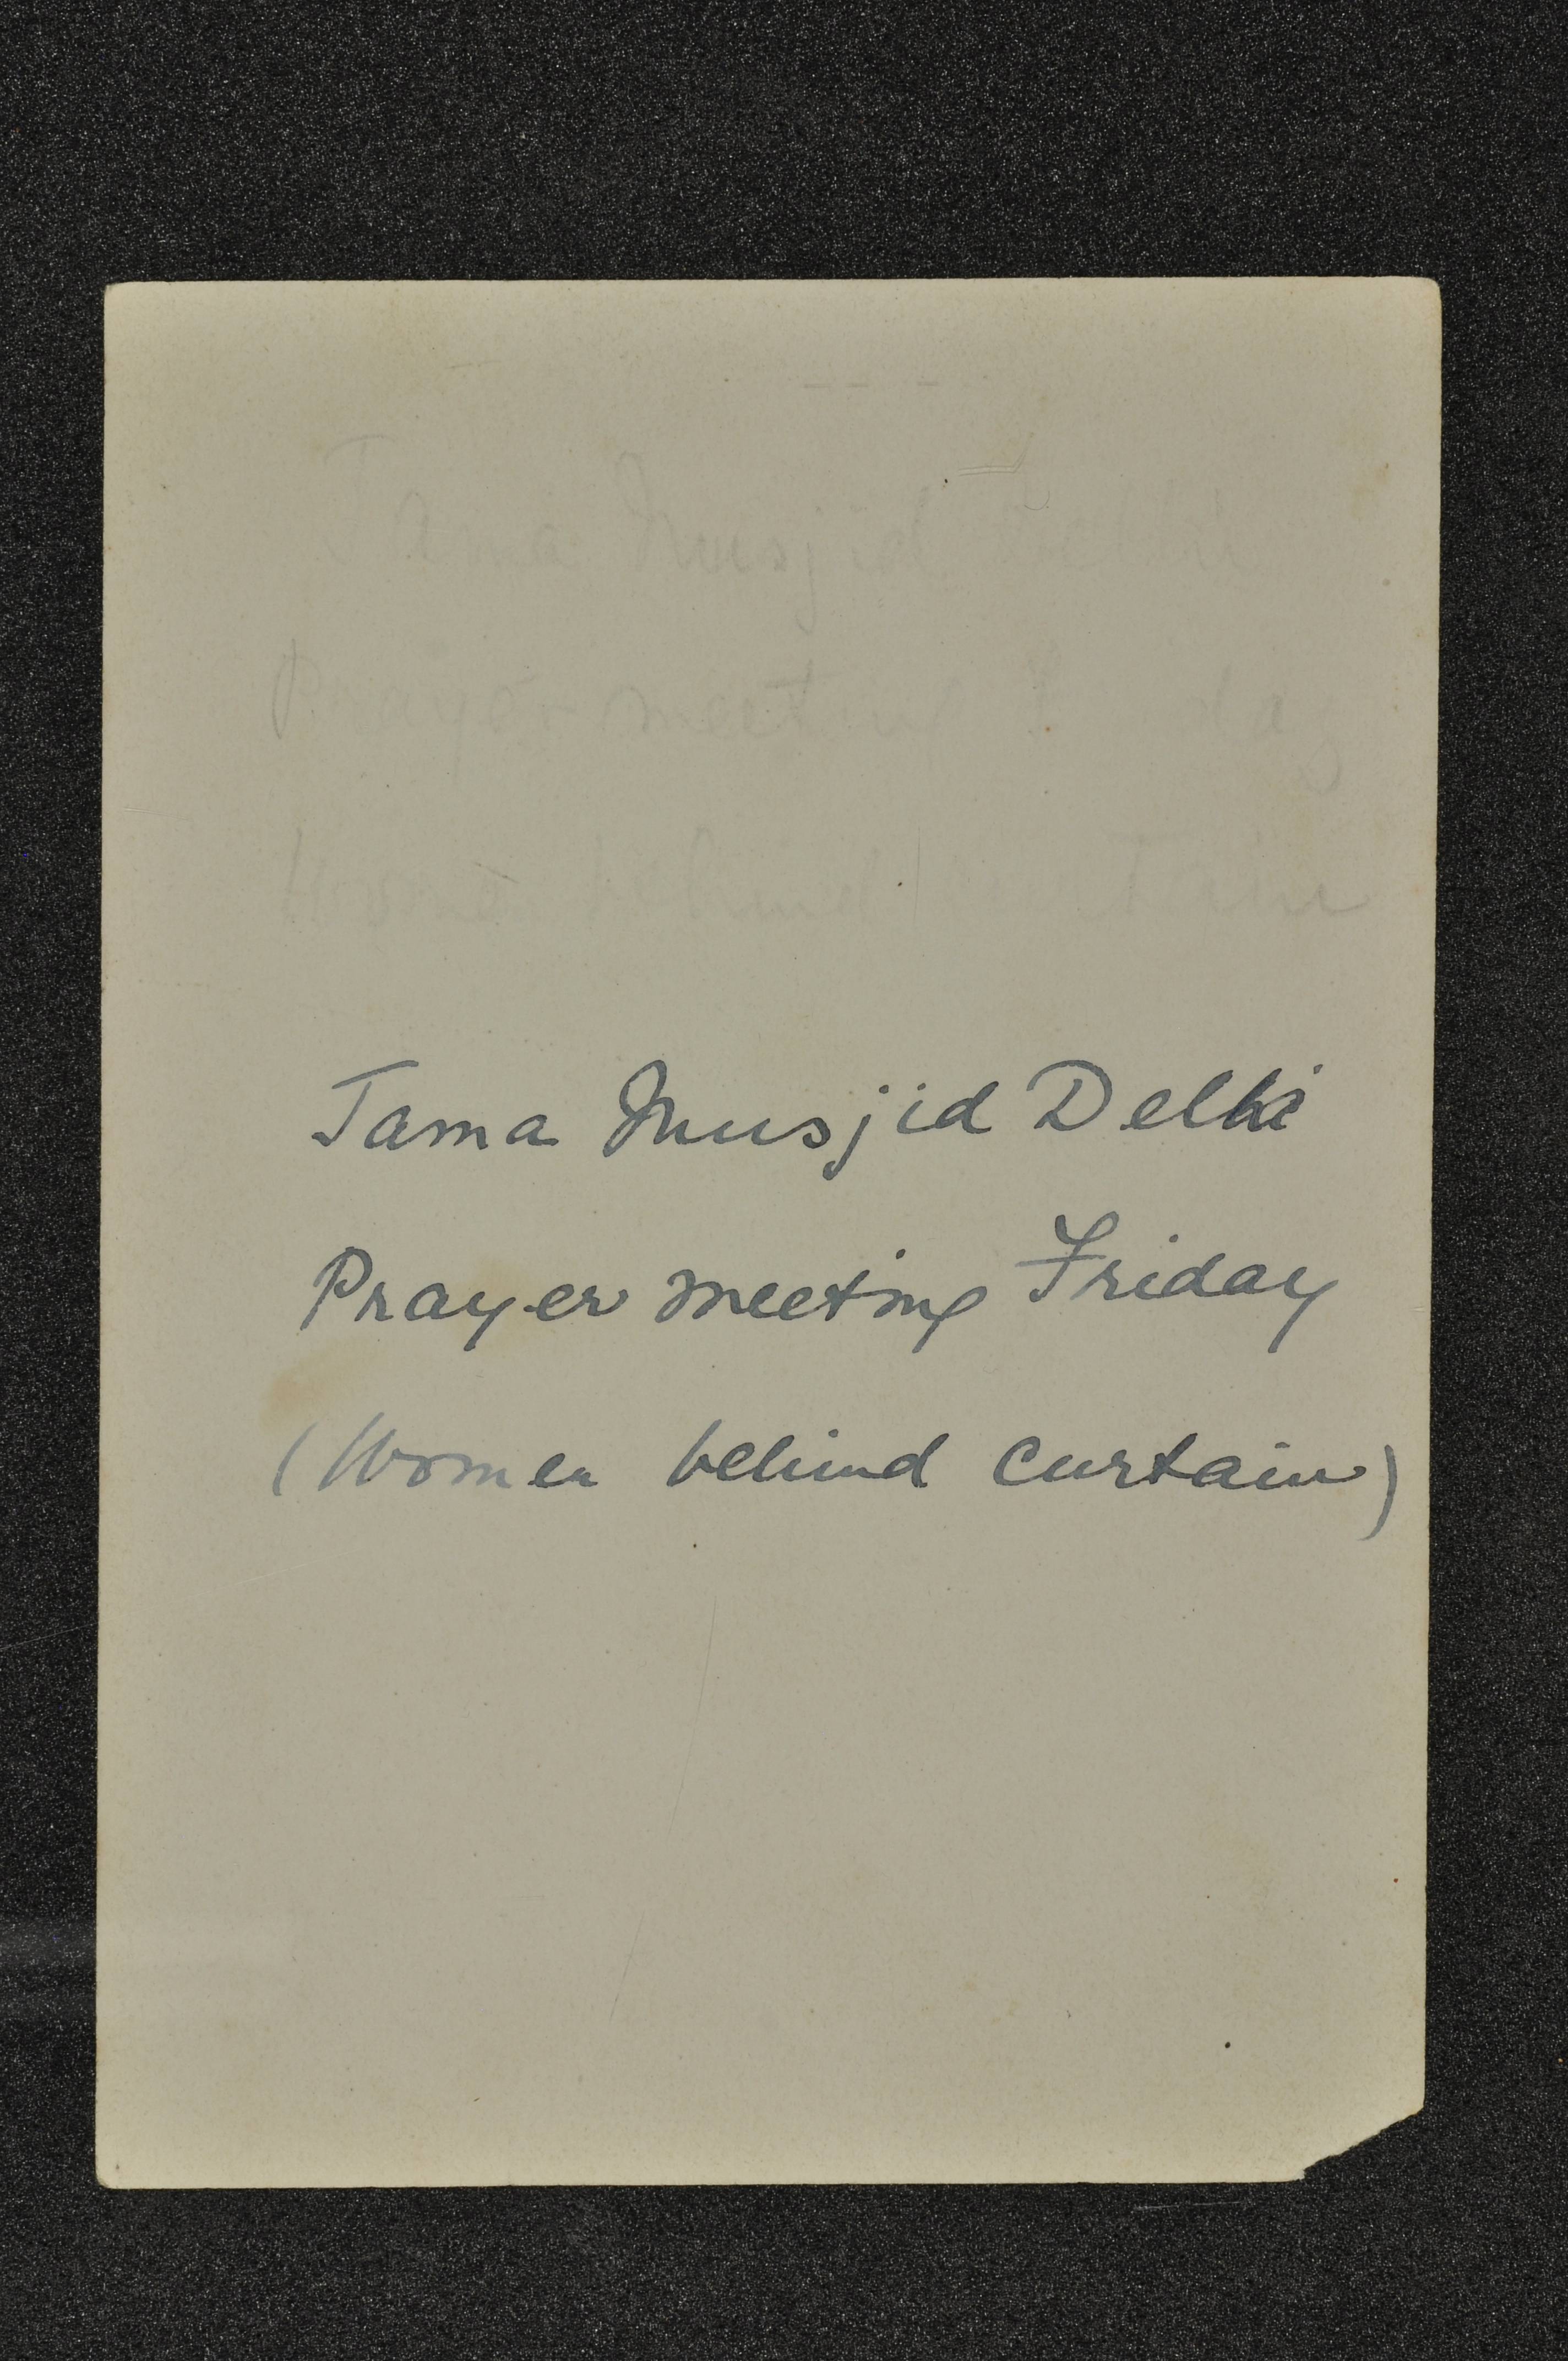 Jama Musjid Delhi
Prayer meeting Friday
Women behind curtain
Jama Musjid Delhi
Prayer meeting Friday
(Women behind curtain)